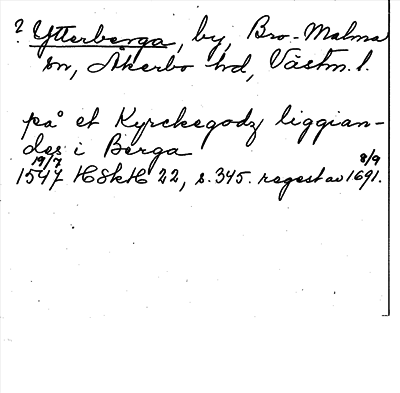 ? Ytterberga, by, Bro-Malma
sn, Åkerbo hd, Västm. l.
på et Kyrckegodz liggian-
des i Berga
19/7 8/9
1547 HSkH 22, s. 345. regest av 1691.